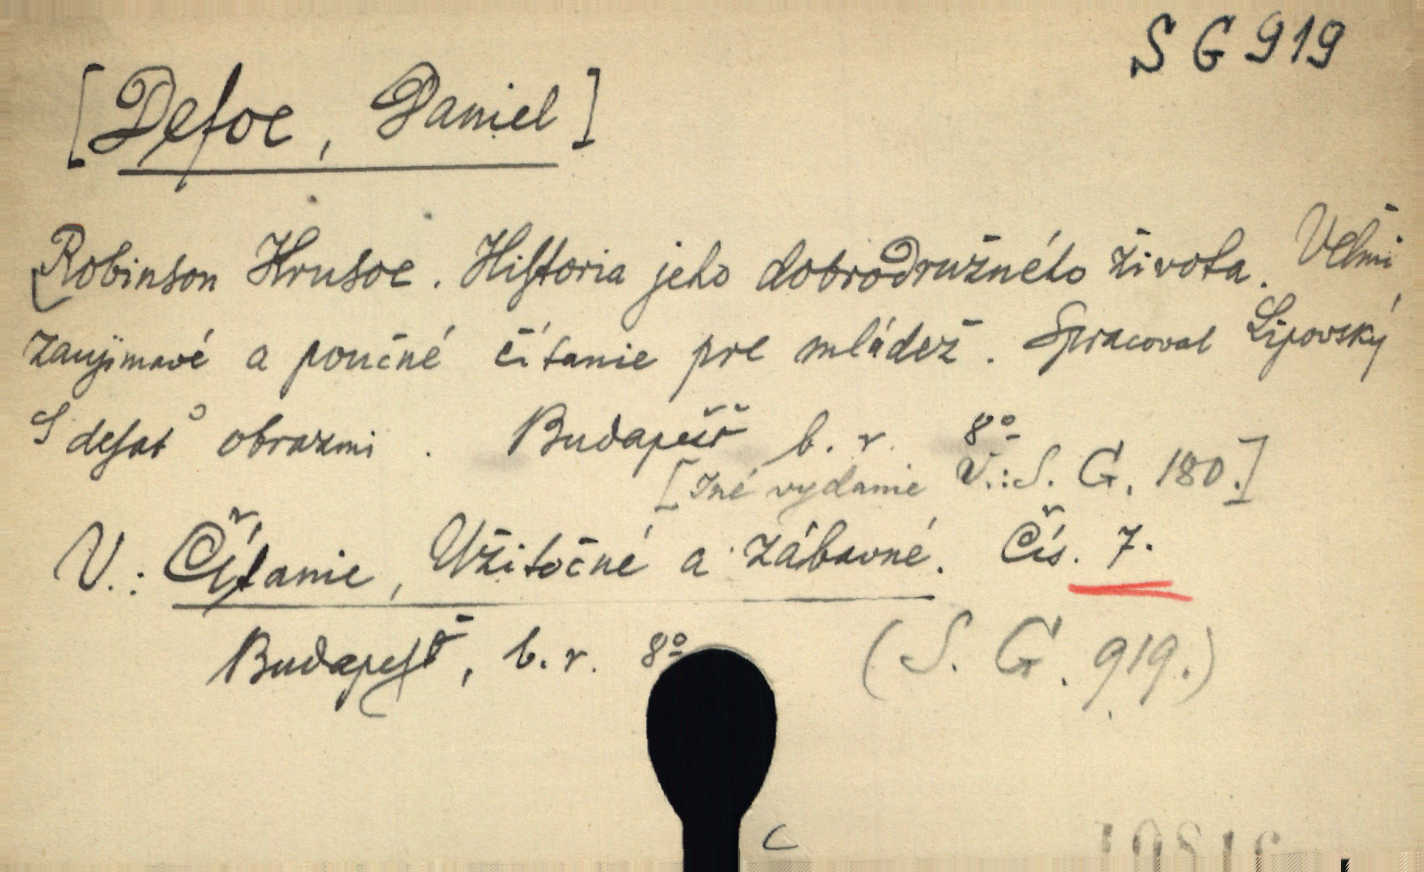 S G 919
[Defoe, Daniel]
Robinson Krusoe. Historia jeho dobrodružného života. Veľmi
zaujímavé a poučné čítanie pre mládež. Spracoval Lipovský
S desať obrazmi. Budapešť b. r. 8°
[Iné vydanie V.: S. G. 180.]
V.: Čítanie, Užitočné a zábavné. Čís. 7.
Budapešť, b. r. 8°
(S. G. 919.)